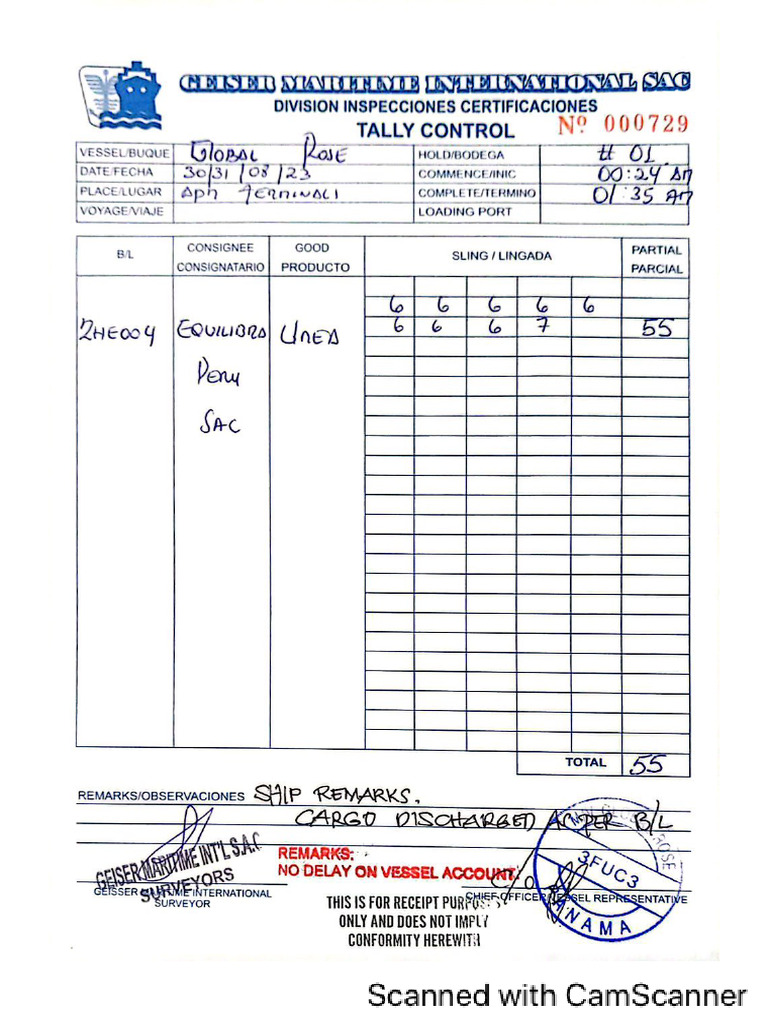 GEISER MARITIME INTERNATIONAL SAC
DIVISION INSPECCIONES CERTIFICACIONES
TALLY CONTROL Nº 000729
VESSEL/BUQUE GLOBAL ROSE HOLD/BODEGA # 01
DATE/FECHA 30/31/08/23 COMMENCE/INIC 00:24 AM
PLACE/LUGAR APM TERMINALI COMPLETE/TERMINO 01:35 AM
VOYAGE/VIAJE LOADING PORT
B/L CONSIGNEE CONSIGNATARIO GOOD PRODUCTO SLING / LINGADA PARTIAL PARCIAL
6 6 6 6 6
2HE004 EQUILIBRA UREA 6 6 6 7 55
PERU
SAC
TOTAL 55
REMARKS/OBSERVACIONES SHIP REMARKS.
CARGO DISCHARGED AS PER B/L
GEISER MARITIME INT'L S.A.C
SURVEYORS
GEISER MARITIME INTERNATIONAL
SURVEYOR
REMARKS:
NO DELAY ON VESSEL ACCOUNT.
CHIEF OFFICER/VESSEL REPRESENTATIVE
THIS IS FOR RECEIPT PURPOSES
ONLY AND DOES NOT IMPLY
CONFORMITY HEREWITH
ROSE
3FUC3
PANAMA
Scanned with CamScanner